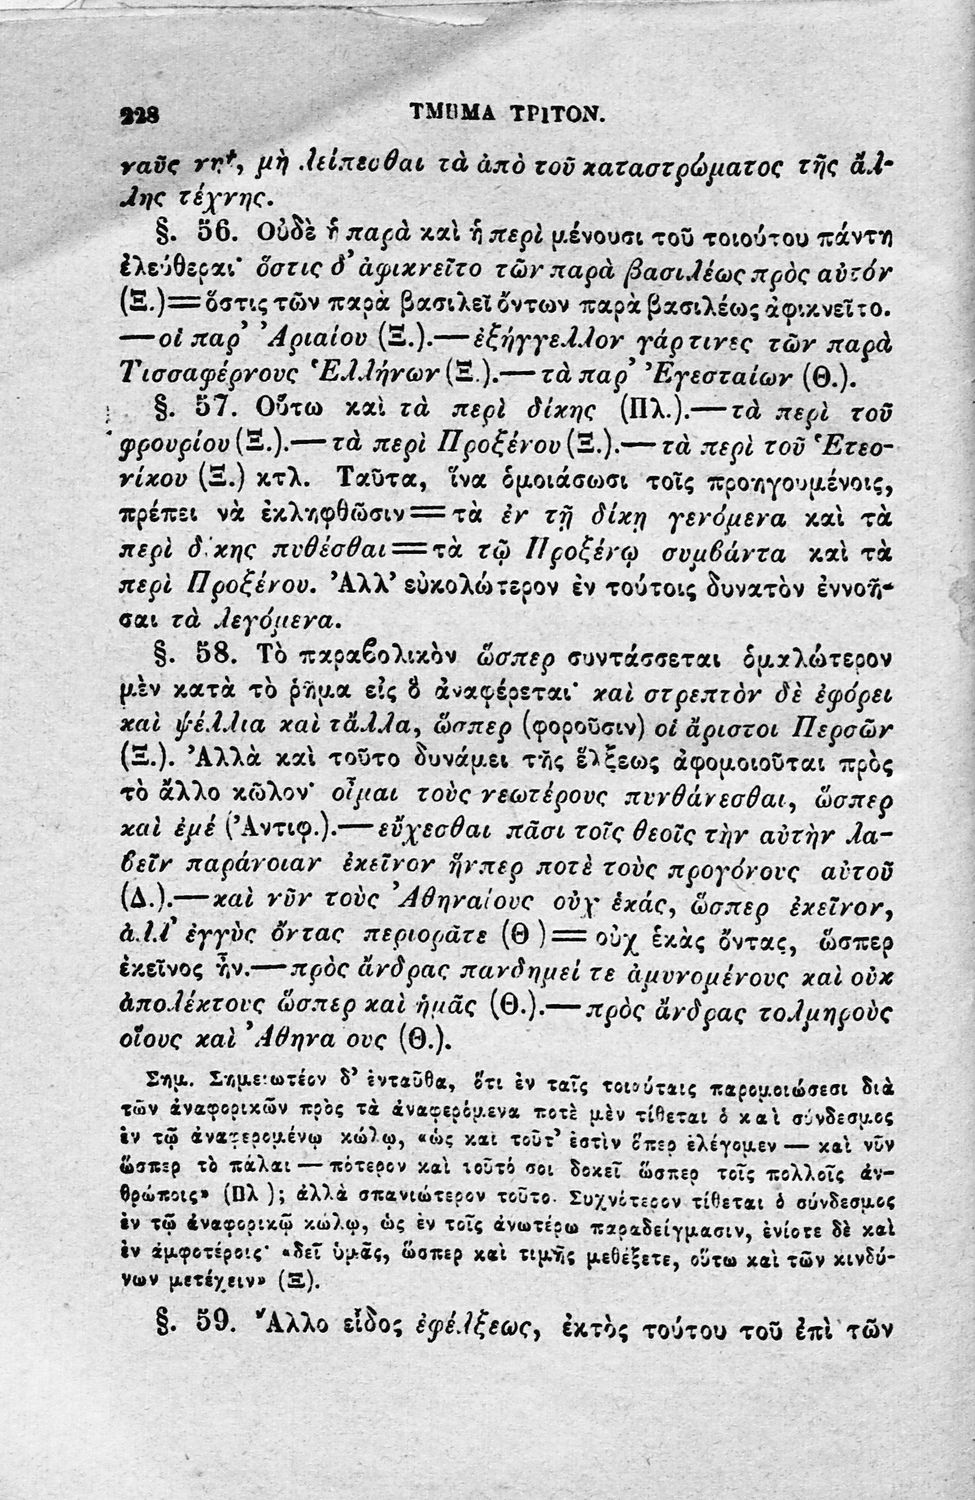 228 ΤΜΗΜΑ ΤΡΙΤΟΝ.
ναῦς νηΐ, μὴ λείπεσθαι τὰ ἀπὸ τοῦ καταστρώματος τῆς ἄλ-
λης τέχνης.
§. 56. Οὐδὲ ἡ παρὰ καὶ ἡ περὶ μένουσι τοῦ τοιούτου πάντη
ἐλεύθεραι· ὅστις δ' ἀφικνεῖτο τῶν παρὰ βασιλέως πρὸς αὐτόν
(Ξ.)=ὅστις τῶν παρὰ βασιλεῖ ὄντων παρὰ βασιλέως ἀφικνεῖτο.
—οἱ παρ' Ἀριαίου (Ξ.).—ἐξήγγελλον γάρ τινες τῶν παρὰ
Τισσαφέρνους Ἑλλήνων (Ξ.).—τὰ παρ' Ἐγεσταίων (Θ.).
§. 57. Οὕτω καὶ τὰ περὶ δίκης (Πλ.).—τὰ περὶ τοῦ
φρουρίου (Ξ.).—τὰ περὶ Προξένου (Ξ.).—τὰ περὶ τοῦ Ἑτεο-
νίκου (Ξ.) κτλ. Ταῦτα, ἵνα ὁμοιάσωσι τοῖς προηγουμένοις,
πρέπει νὰ ἐκληφθῶσιν=τὰ ἐν τῇ δίκῃ γενόμενα καὶ τὰ
περὶ δίκης πυθέσθαι=τὰ τῷ Προξένῳ συμβάντα καὶ τὰ
περὶ Προξένου. Ἀλλ' εὐκολώτερον ἐν τούτοις δυνατὸν ἐννοῆ-
σαι τὰ λεγόμενα.
§. 58. Τὸ παραβολικὸν ὥσπερ συντάσσεται ὁμαλώτερον
μὲν κατὰ τὸ ῥῆμα εἰς ὃ ἀναφέρεται· καὶ στρεπτὸν δὲ ἐφόρει
καὶ ψέλλια καὶ τἆλλα, ὥσπερ (φοροῦσιν) οἱ ἄριστοι Περσῶν
(Ξ.). Ἀλλὰ καὶ τοῦτο δυνάμει τῆς ἕλξεως ἀφομοιοῦται πρὸς
τὸ ἄλλο κῶλον· οἶμαι τοὺς νεωτέρους πυνθάνεσθαι, ὥσπερ
καὶ ἐμέ (Ἀντιφ.).—εὔχεσθαι πᾶσι τοῖς θεοῖς τὴν αὐτὴν λα-
βεῖν παράνοιαν ἐκεῖνον ἥνπερ ποτὲ τοὺς προγόνους αὐτοῦ
(Δ.).—καὶ νῦν τοὺς Ἀθηναίους οὐχ ἑκάς, ὥσπερ ἐκεῖνον,
ἀλλ' ἐγγὺς ὄντας περιορᾶτε (Θ )=οὐχ ἑκὰς ὄντας, ὥσπερ
ἐκεῖνος ἦν.—πρὸς ἄνδρας πανδημεί τε ἀμυνομένους καὶ οὐκ
ἀπολέκτους ὥσπερ καὶ ἡμᾶς (Θ.).—πρὸς ἄνδρας τολμηροὺς
οἵους καὶ Ἀθηναίους (Θ.).
Σημ. Σημειωτέον δ' ἐνταῦθα, ὅτι ἐν ταῖς τοιούταις παρομοιώσεσι διὰ
τῶν ἀναφορικῶν πρὸς τὰ ἀναφερόμενα ποτὲ μὲν τίθεται ὁ καὶ σύνδεσμος
ἐν τῷ ἀναφερομένῳ κώλῳ, «ὡς καὶ τοῦτ' ἐστὶν ὅπερ ἐλέγομεν — καὶ νῦν
ὥσπερ τὸ πάλαι — πότερον καὶ τοῦτό σοι δοκεῖ ὥσπερ τοῖς πολλοῖς ἀν-
θρώποις» (Πλ ); ἀλλὰ σπανιώτερον τοῦτο. Συχνότερον τίθεται ὁ σύνδεσμος
ἐν τῷ ἀναφορικῷ κώλῳ, ὡς ἐν τοῖς ἀνωτέρω παραδείγμασιν, ἐνίοτε δὲ καὶ
ἐν ἀμφοτέροις· «δεῖ ὑμᾶς, ὥσπερ καὶ τιμῆς μεθέξετε, οὕτω καὶ τῶν κινδύ-
νων μετέχειν» (Ξ).
§. 59. Ἄλλο εἶδος ἐφέλξεως, ἐκτὸς τούτου τοῦ ἐπὶ τῶν